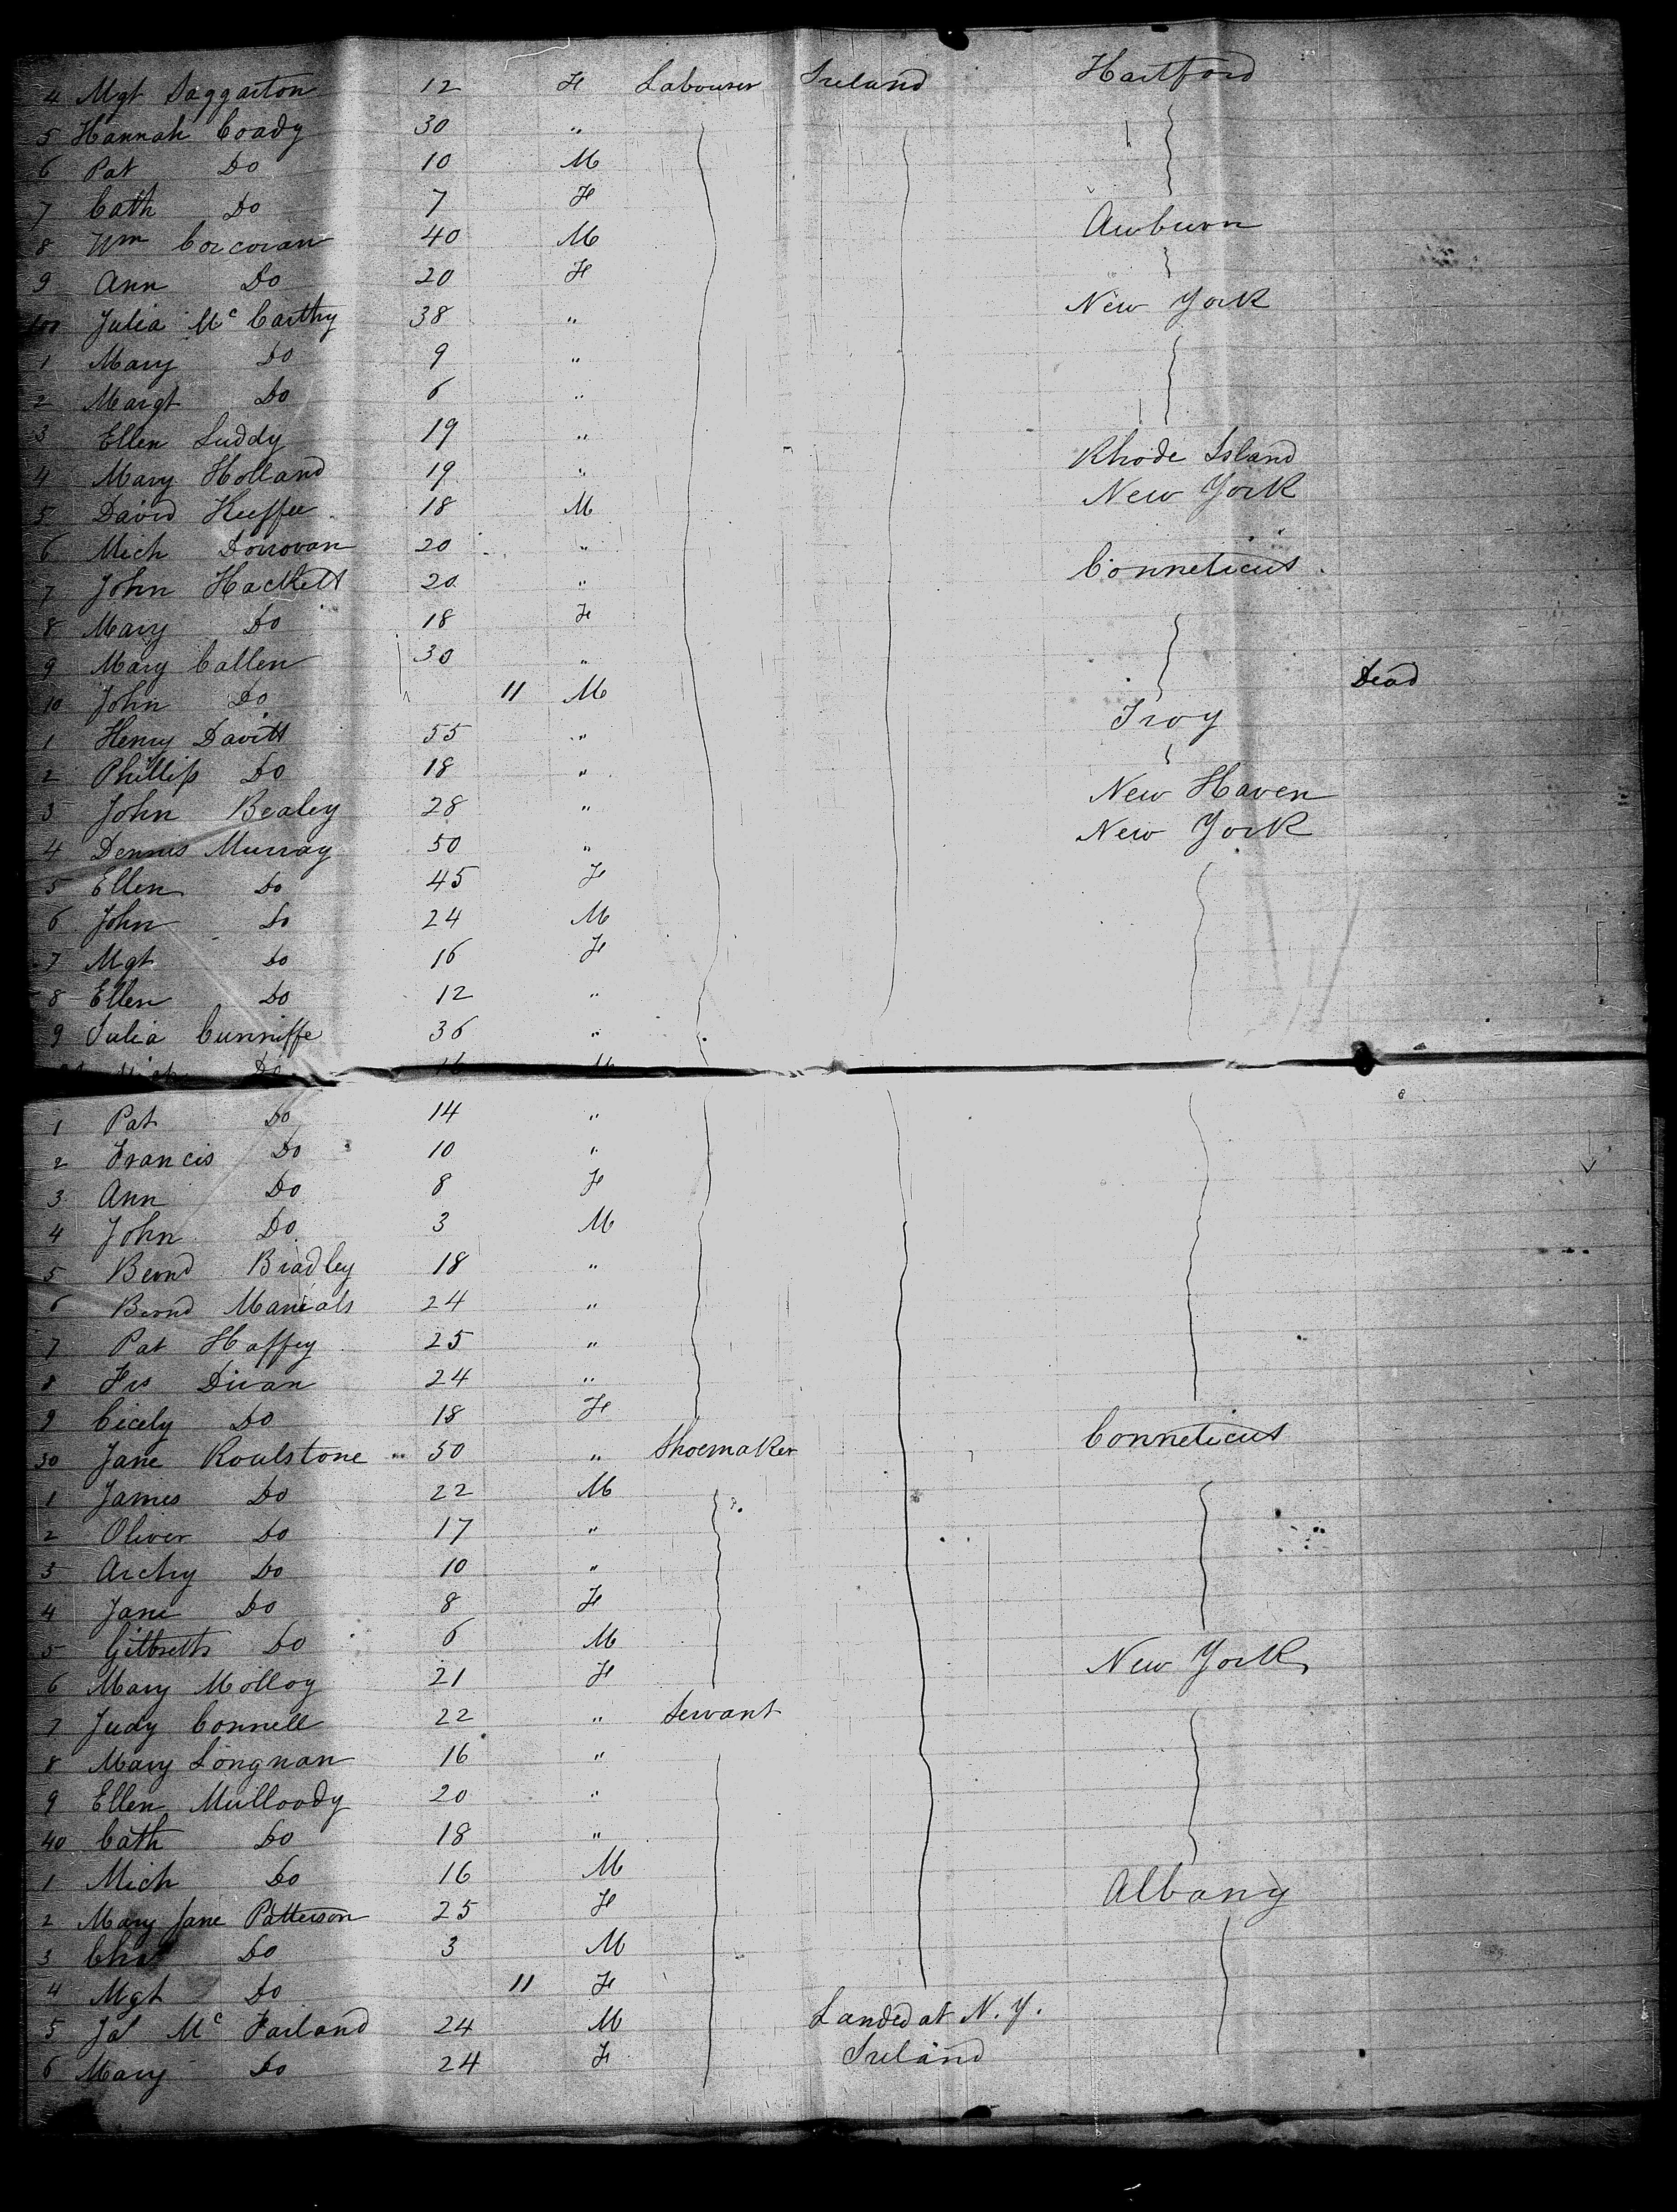 4 Mgt Saggarton 12 F Labourer Ireland Hartford
5 Hannah Coady 30 "
6 Pat Do 10 M
7 Cath Do 7 F
8 Wm Corcoran 40 M Auburn
9 Ann Do 20 F
100 Julia Mc Carthy 38 " New York
1 Mary Do 9 "
2 Margt Do 6 "
3 Ellen Luddy 19 " Rhode Island
4 Mary Holland 19 " New York
5 David Keeffee 18 M
6 Mich Donovan 20 " Conneticut
7 John Hackett 20 "
8 Mary Do 18 F
9 Mary Callen 30 "
10 John Do 11 M Dead
1 Henry Davitt 55 " Troy
2 Phillip Do 18 "
3 John Bealey 28 " New Haven
4 Dennis Murray 50 " New York
5 Ellen Do 45 F
6 John Do 24 M
7 Mgt Do 16 F
8 Ellen Do 12 "
9 Julia Cunniffe 36 "
Do 16 M
1 Pat Do 14 "
2 Francis Do 10 "
3 Ann Do 8 F
4 John Do 3 M
5 Bernd Bradley 18 "
6 Bernd 24 "
7 Pat Haffey 25 "
8 Frs Divan 24 "
9 Cicely Do 18 F
30 Jane Roulstone 50 " Shoemaker Conneticut
1 James Do 22 M
2 Oliver Do 17 "
3 Archy Do 10 "
4 Jane Do 8 F
5 Do 6 M
6 Mary Molloy 21 F New York
7 Judy Connell 22 " Servant
8 Mary Longnan 16 "
9 Ellen Mulloody 20 "
40 Cath Do 18 "
1 Mich Do 16 M
2 Mary Jane Patterson 25 F Albany
3 Chas Do 3 M
4 Mgt Do 11 F
5 Jas Mc Farland 24 M Landed at N. Y.
6 Mary Do 24 F Ireland